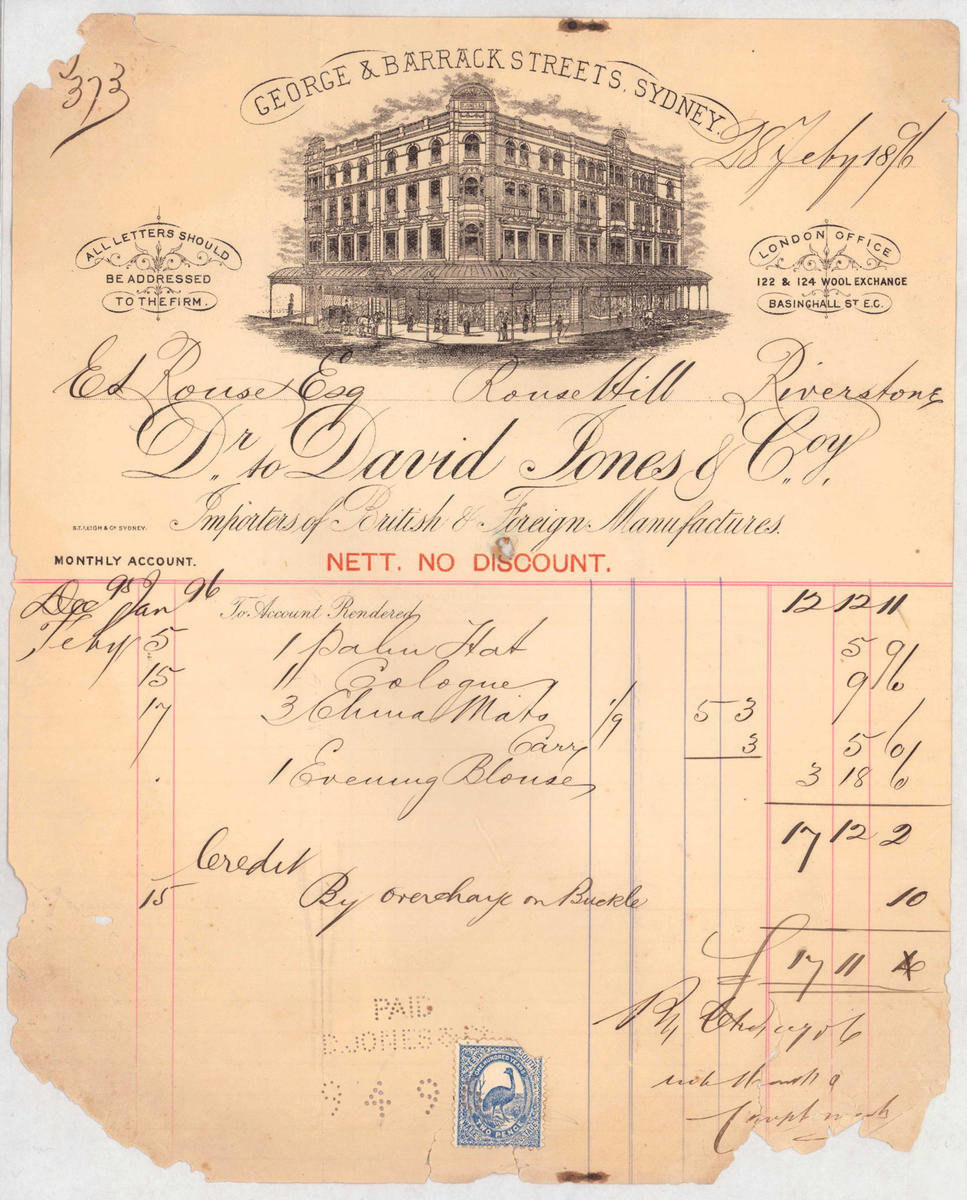 373
GEORGE & BARRACK STREETS, SYDNEY.
28 Feby 1896
ALL LETTERS SHOULD
BE ADDRESSED
TO THE FIRM.
LONDON OFFICE
122 & 124 WOOL EXCHANGE
BASINGHALL ST E.C.
Ed Rouse Esq Rouse Hill Riverstone
Dr. to David Jones & Coy.
Importers of British & Foreign Manufactures.
S.T. LEIGH & Co SYDNEY.
MONTHLY ACCOUNT.
NETT. NO DISCOUNT.
Dec 95 Jan 96 To Account Rendered 12 12 11
Feby 5 1 Palm Hat 5 9
15 1 Cologne 9 6
17 3 China Mats 1/9 5 3
Carr 3 5 6
1 Evening Blouse 3 18 6
17 12 2
Credit
15 By overcharge on Buckle 10
£ 17 11 4
By Cheque
PAID
D. JONES & Co
9 4 9
ONE HUNDRED YEARS
SOUTH
TWO PENCE